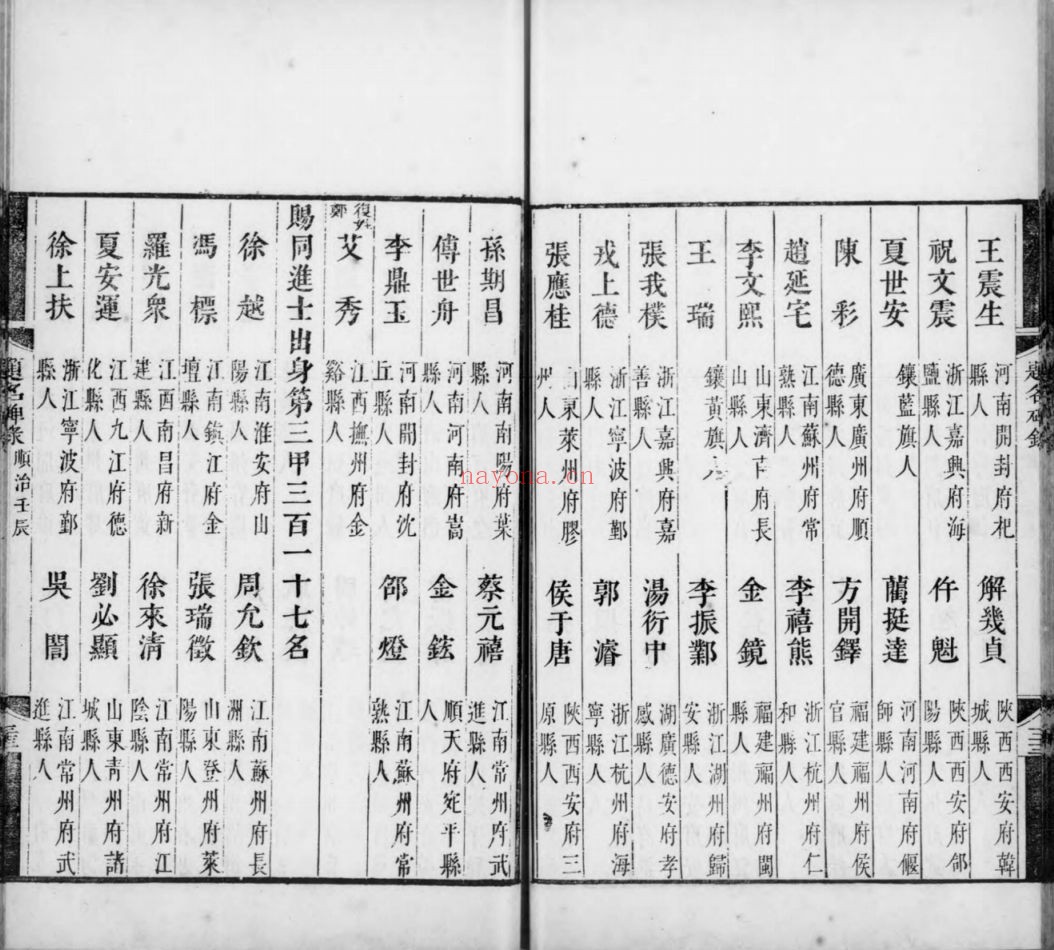 王震生 河南開封府杞縣人 解幾貞 陝西西安府韓城人
祝文震 浙江嘉興府海鹽縣人 仵魁 陝西西安府郃陽人
夏世安 鑲藍旗人 藺挺達 河南河南府偃師人
陳彩 廣東廣州府順德縣人 方開鐸 福建福州府侯官縣人
趙延宅 江南蘇州府常熟縣人 李禧熊 浙江杭州府仁和縣人
李文熙 山東濟南府長山縣人 金鏡 福建福州府閩縣人
王瑞 鑲黃旗人 李振鄴 浙江湖州府歸安縣人
張我樸 浙江嘉興府嘉善縣人 湯衍中 湖廣德安府孝感縣人
戎上德 浙江寧波府鄞縣人 郭濬 浙江杭州府海寧縣人
張應桂 山東萊州府膠州人 侯于唐 陝西西安府三原縣人
題名碑錄
孫期昌 河南南陽府葉縣人 蔡元禧 江南常州府武進縣人
傅世舟 河南河南府嵩縣人 金鋐 順天府宛平縣人
李鼎玉 河南開封府沈丘縣人 邵燈 江南蘇州府常熟縣人
復姓鄭
艾秀 江西撫州府金谿縣人
賜同進士出身第三甲三百一十七名
徐越 江南淮安府山陽縣人 周允欽 江南蘇州府長洲縣人
馮標 江南鎮江府金壇縣人 張瑞徵 山東登州府萊陽縣人
羅光衆 江西南昌府新建縣人 徐來清 江南常州府江陰縣人
夏安運 江西九江府德化縣人 劉必顯 山東青州府諸城縣人
徐上扶 浙江寧波府鄞縣人 吳闇 江南常州府武進縣人
題名碑錄 順治壬辰
nayona.cn